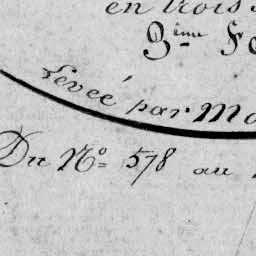 en trois
3ème Fe
Levée par Mo
Du No 578 au